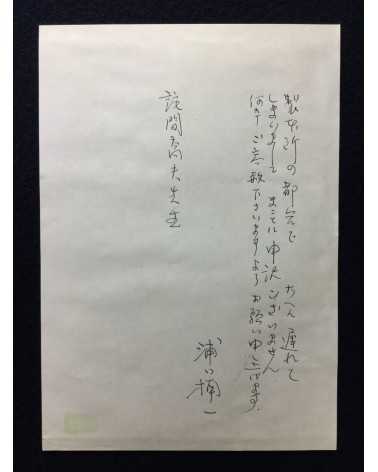 製本所の都合で たいへん遅れて
しまいまして まことに申訳ございません
何卒 ご高教下さいますよう お願い申上げます。
間喬夫先生
浦口楠一